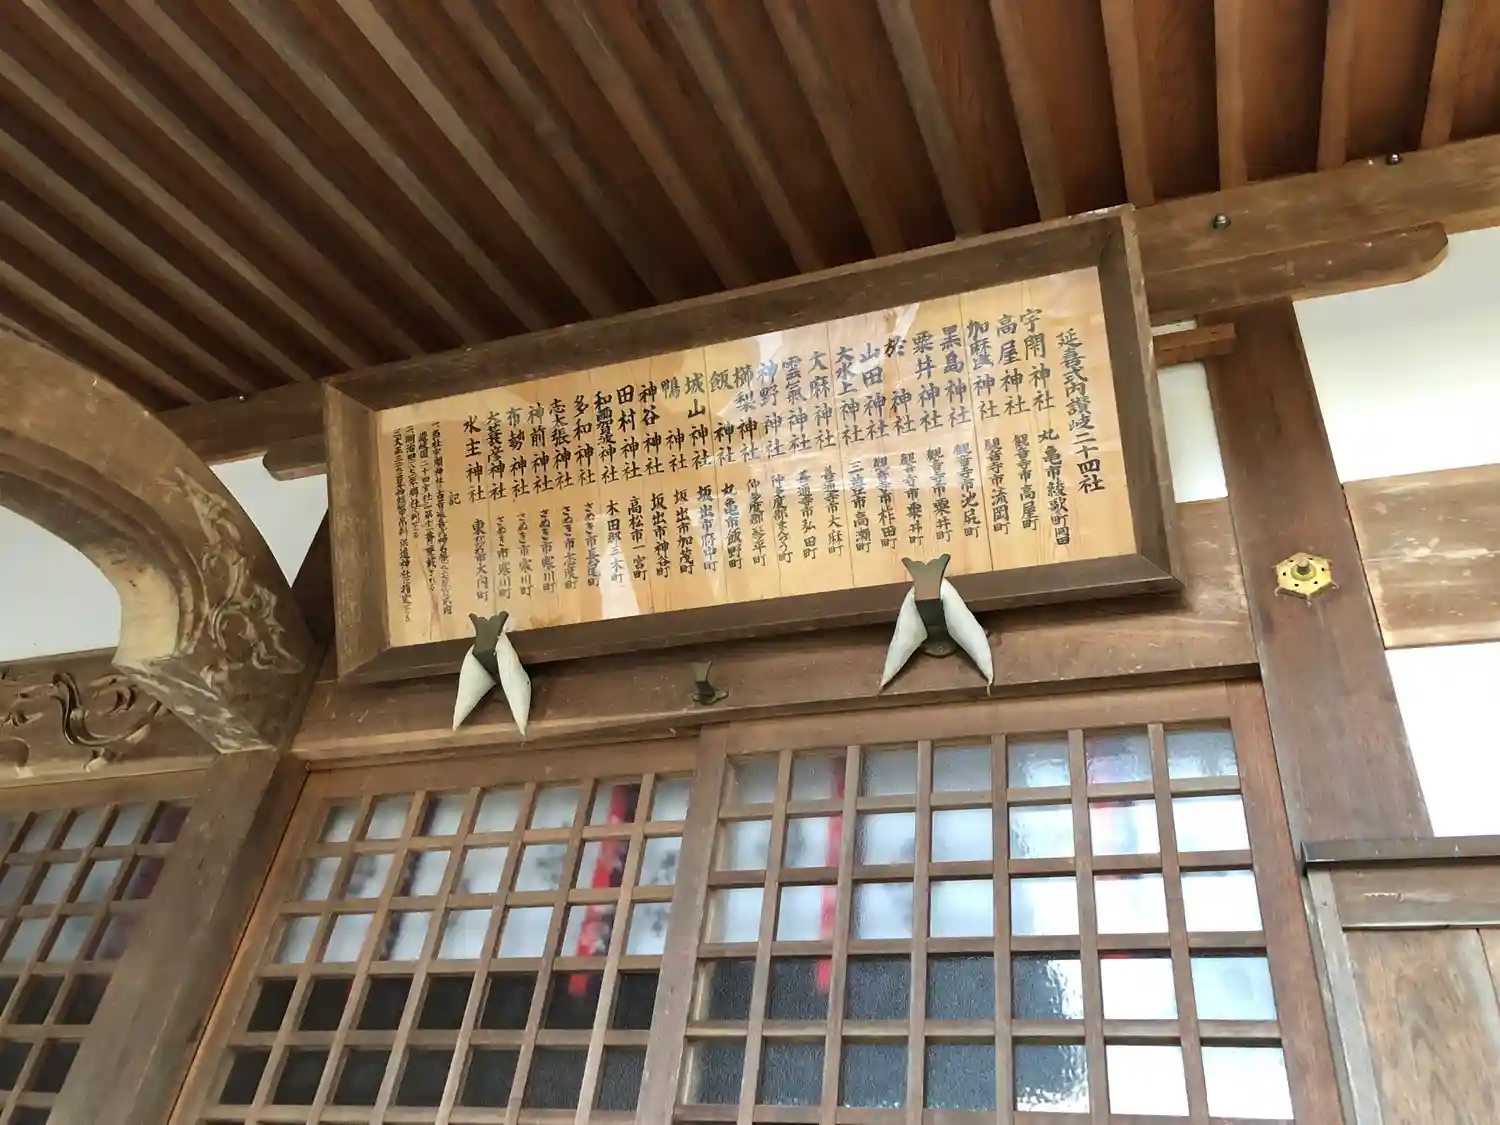 延喜式内讃岐二十四社
宇閇神社 丸亀市綾歌町岡田
高屋神社 観音寺市高屋町
加麻良神社 観音寺市流岡町
黒島神社 観音寺市池尻町
粟井神社 観音寺市粟井町
於神社 観音寺市粟井町
山田神社 観音寺市柞田町
大水上神社 三豊市高瀬町
大麻神社 善通寺市大麻町
雲氣神社 善通寺市弘田町
神野神社 仲多度郡まんのう町
櫛梨神社 仲多度郡琴平町
飯神社 丸亀市飯野町
城山神社 坂出市府中町
鴨神社 坂出市加茂町
神谷神社 坂出市神谷町
田村神社 高松市一宮町
和爾賀波神社 木田郡三木町
多和神社 さぬき市長尾町
志太張神社 さぬき市志度町
神前神社 さぬき市寒川町
布勢神社 さぬき市寒川町
大蓑彦神社 さぬき市寒川町
水主神社 東かがわ市大内町
記